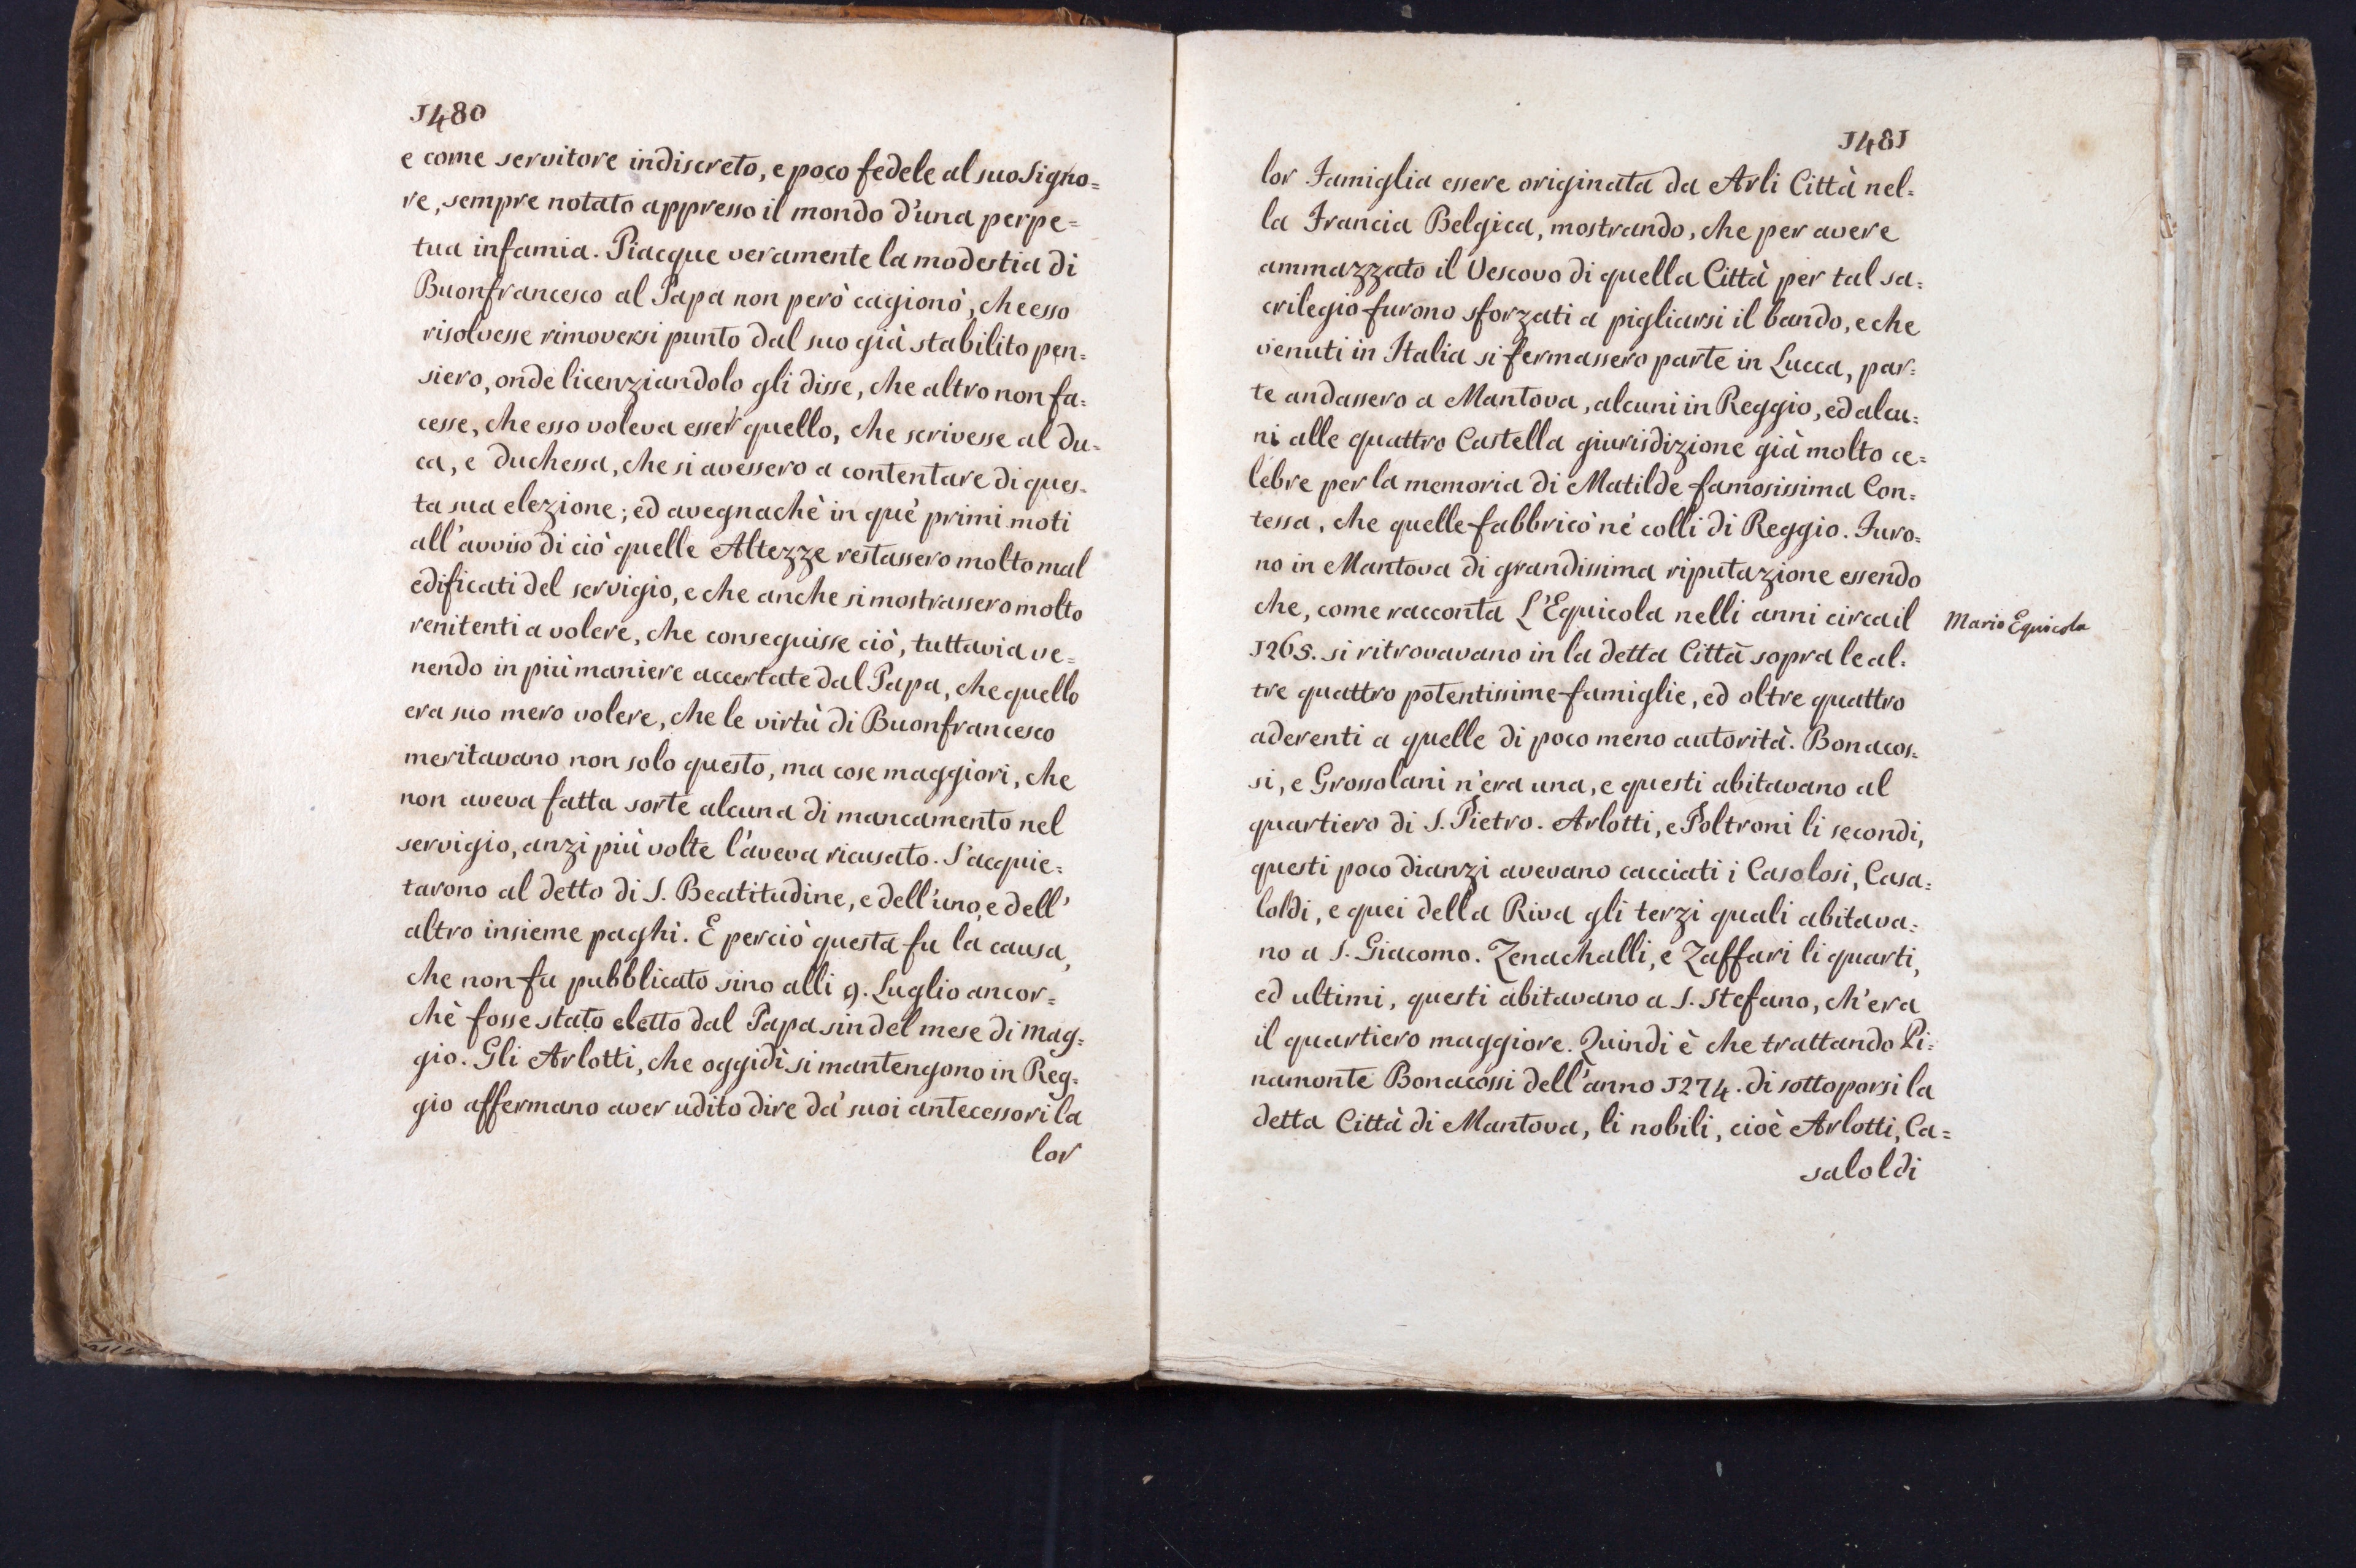 1480
e come servitore indiscreto, e poco fedele al suo Signo=
re, sempre notato appresso il mondo d'una perpe=
tua infamia. Piacque veramente la modestia di
Buonfrancesco al Papa non però cagionò, che esso
risolvesse rimoversi punto dal suo già stabilito pen=
siero, onde licenziandolo gli disse, che altro non fa=
cesse, che esso voleva esser quello, che scrivesse al Du=
ca, e Duchessa, che si avessero a contentare di ques=
ta sua elezione; ed avegnachè in què primi moti
all'avviso di ciò quelle Altezze restassero molto mal
edificati del servigio, e che anche si mostrassero molto
renitenti a volere, che conseguisse ciò, tuttavia ve=
nendo in più maniere accertate dal Papa, che quello
era suo mero volere, che le virtù di Buonfrancesco
meritavano non solo questo, ma cose maggiori, che
non aveva fatta sorte alcuna di mancamento nel
servigio, anzi più volte l'aveva ricusato. S'acquie=
tarono al detto di S. Beatitudine, e dell'uno, e dell'
altro insieme paghi. E perciò questa fu la causa,
che non fu pubblicato sino alli 9. Luglio ancor=
chè fosse stato eletto dal Papa sin del mese di Mag=
gio. Gli Arlotti, che oggidì si mantengono in Reg=
gio affermano aver udito dire da' suoi antecessori la
lor
1481
lor Famiglia essere originata da Arli Città nel=
la Francia Belgica, mostrando, che per avere
ammazzato il Vescovo di quella Città per tal sa=
crilegio furono sforzati a pigliarsi il bando, e che
venuti in Italia si fermassero parte in Lucca, par=
te andassero a Mantova, alcuni in Reggio, ed alcu=
ni alle quattro Castella giurisdizione già molto ce=
lebre per la memoria di Matilde famosissima Con=
tessa, che quelle fabbricò nè colli di Reggio. Furo=
no in Mantova di grandissima riputazione essendo
che, come racconta L'Equicola nelli anni circa il
Mario Equicola
1265. si ritrovavano in la detta Città sopra le al=
tre quattro potentissime famiglie, ed oltre quattro
aderenti a quelle di poco meno autorità. Bonacos=
si, e Grossolani n'era una, e questi abitavano al
quartiero di S. Pietro. Arlotti, e Poltroni li secondi,
questi poco dianzi avevano cacciati i Casolosi, Casa=
loldi, e quei della Riva gli terzi quali abitava=
no a S. Giacomo. Zenachalli, e Zaffari li quarti,
ed ultimi, questi abitavano a S. Stefano, ch'era
il quartiero maggiore. Quindi è che trattando Pi=
namonte Bonacossi dell'anno 1274. di sottoporsi la
detta Città di Mantova, li nobili, cioè Arlotti, Ca=
saloldi